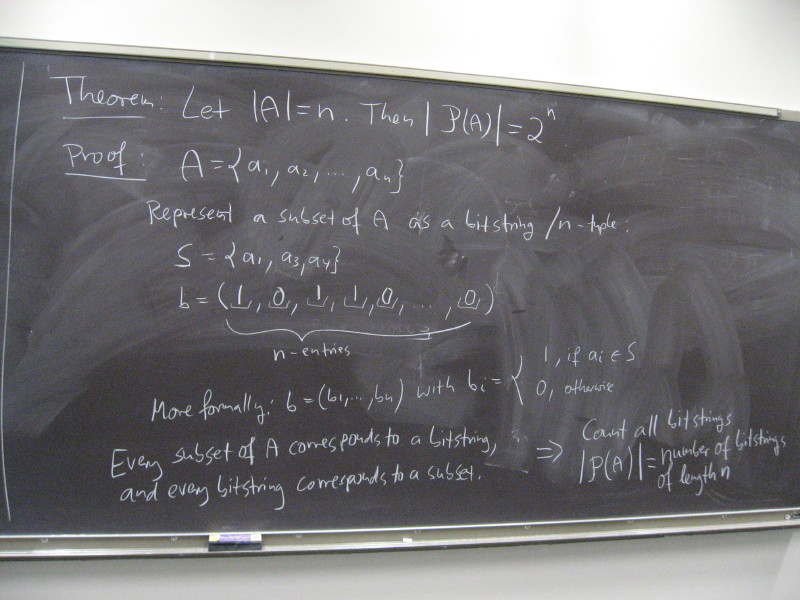 Theorem: Let |A|=n. Then |P(A)|=2^n
Proof: A={a₁, a₂, ..., aₙ}
Represent a subset of A as a bitstring/n-tuple:
S={a₁, a₃, a₄}
b=(1, 0, 1, 1, 0, ..., 0)
n-entries
More formally: b=(b₁,...,bₙ) with bᵢ={ 1, if aᵢ∈S
0, otherwise
Every subset of A corresponds to a bitstring,
and every bitstring corresponds to a subset.
⇒ Count all bitstrings
|P(A)|=number of bitstrings
of length n